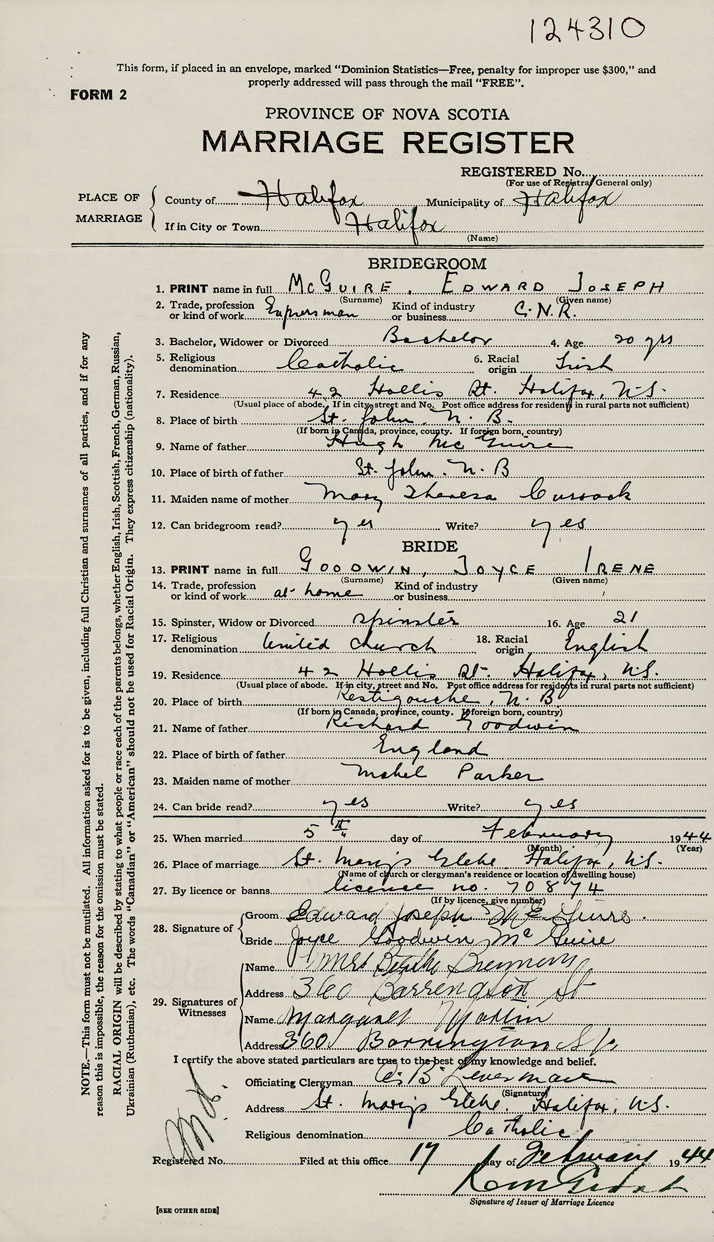 124310
This form, if placed in an envelope, marked "Dominion Statistics—Free, penalty for improper use $300," and
properly addressed will pass through the mail "FREE".
FORM 2
PROVINCE OF NOVA SCOTIA
MARRIAGE REGISTER
REGISTERED No.
(For use of Registrar General only)
PLACE OF MARRIAGE
County of Halifax Municipality of Halifax
If in City or Town Halifax
(Name)
BRIDEGROOM
1. PRINT name in full McGUIRE, EDWARD JOSEPH
(Surname) (Given name)
2. Trade, profession or kind of work Expressman Kind of industry or business C.N.R.
3. Bachelor, Widower or Divorced Bachelor 4. Age 20 yrs
5. Religious denomination Catholic 6. Racial origin Irish
7. Residence 42 Hollis St. Halifax, N.S.
(Usual place of abode. If in city, street and No. Post office address for residents in rural parts not sufficient)
8. Place of birth St. John, N.B.
(If born in Canada, province, county. If foreign born, country)
9. Name of father Hugh McGuire
10. Place of birth of father St. John. N.B
11. Maiden name of mother Mary Theresa Cussack
12. Can bridegroom read? yes Write? yes
BRIDE
13. PRINT name in full GOODWIN, JOYCE IRENE
(Surname) (Given name)
14. Trade, profession or kind of work at home Kind of industry or business
15. Spinster, Widow or Divorced spinster 16. Age 21
17. Religious denomination United church 18. Racial origin English
19. Residence 42 Hollis St. Halifax, N.S.
(Usual place of abode. If in city, street and No. Post office address for residents in rural parts not sufficient)
20. Place of birth Restigouche, N.B
(If born in Canada, province, county. If foreign born, country)
21. Name of father Richard Goodwin
22. Place of birth of father England
23. Maiden name of mother Mabel Parker
24. Can bride read? yes Write? yes
25. When married 5th day of February 1944
(Month) (Year)
26. Place of marriage St. Mary's Glebe, Halifax, N.S.
(Name of church or clergyman's residence or location of dwelling house)
27. By licence or banns license no. 70874
(If by licence, give number)
28. Signature of
Groom Edward Joseph McGuire.
Bride Joyce Goodwin McGuire
29. Signatures of Witnesses
Name Mrs
Address 360 Barrington St
Name Margaret
Address 360 Barrington St
I certify the above stated particulars are true to the best of my knowledge and belief.
Officiating Clergyman
(Signature)
Address St. Mary's Glebe, Halifax, N.S.
Religious denomination Catholic
Registered No. Filed at this office 17 day of February 1944
Signature of Issuer of Marriage Licence
[SEE OTHER SIDE]
NOTE.—This form must not be mutilated. All information asked for is to be given, including full Christian and surnames of all parties, and if for any
reason this is impossible, the reason for the omission must be stated.
RACIAL ORIGIN will be described by stating to what people or race each of the parents belongs, whether English, Irish, Scottish, French, German, Russian,
Ukrainian (Ruthenian), etc. The words "Canadian" or "American" should not be used for Racial Origin. They express citizenship (nationality).